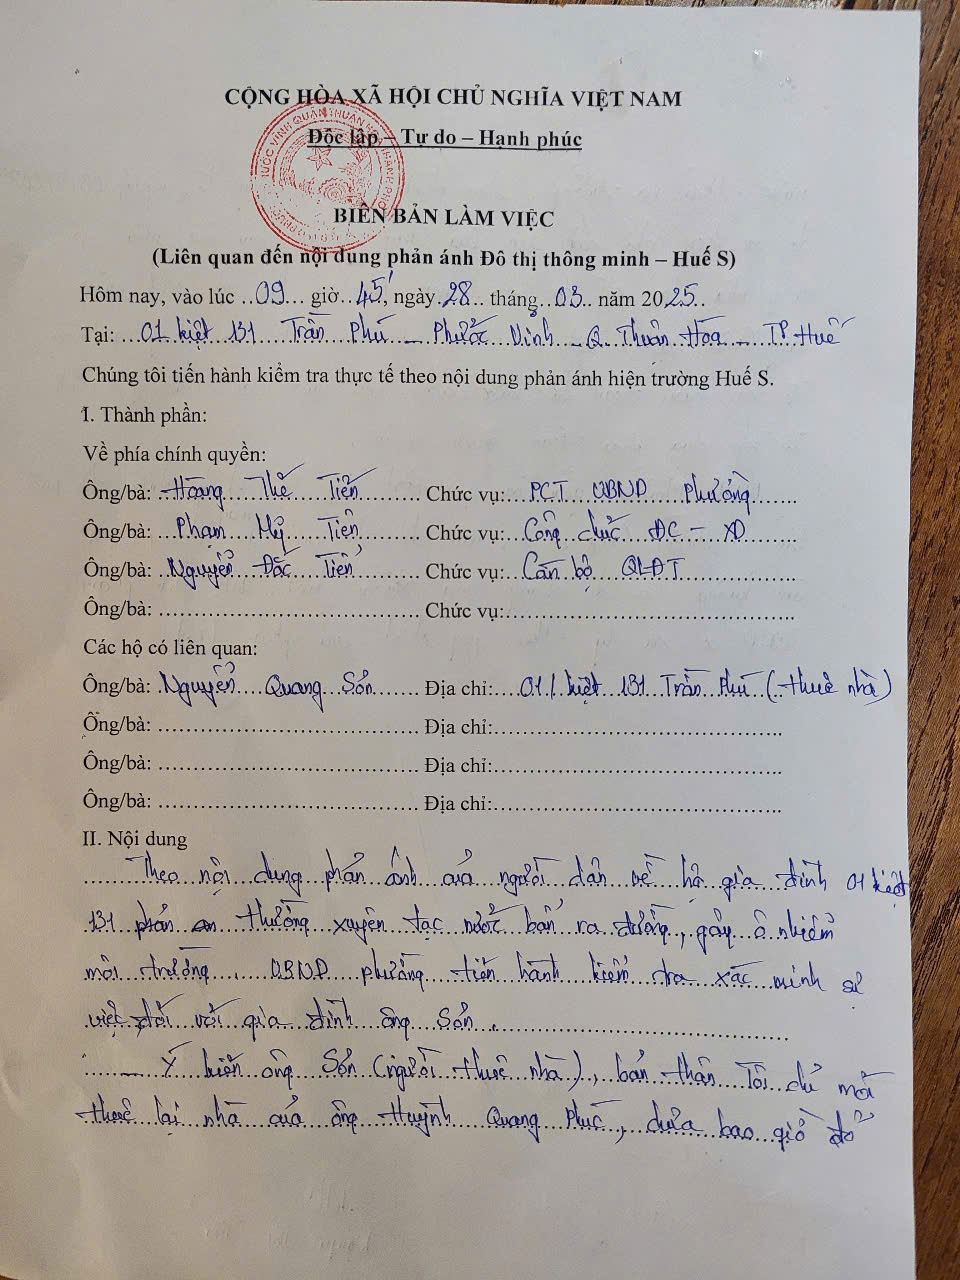 CỘNG HÒA XÃ HỘI CHỦ NGHĨA VIỆT NAM
Độc lập – Tự do – Hạnh phúc
BIÊN BẢN LÀM VIỆC
(Liên quan đến nội dung phản ánh Đô thị thông minh – Huế S)
Hôm nay, vào lúc ..09... giờ..45', ngày.28.. tháng..03.. năm 2025..
Tại: 01 kiệt 131 Trần Phú – Phước Vĩnh – Q. Thuận Hóa – TP Huế
Chúng tôi tiến hành kiểm tra thực tế theo nội dung phản ánh hiện trường Huế S.
I. Thành phần:
Về phía chính quyền:
Ông/bà: Hoàng Thế Tiến Chức vụ: PCT UBND Phường
Ông/bà: Phạm Mỹ Tiên Chức vụ: Công chức ĐC – XD
Ông/bà: Nguyễn Đắc Tiến Chức vụ: Cán bộ QLĐT
Ông/bà: ........ Chức vụ:........
Các hộ có liên quan:
Ông/bà: Nguyễn Quang Sơn Địa chỉ: 01/ kiệt 131 Trần Phú (thuê nhà)
Ông/bà: ........ Địa chỉ:........
Ông/bà: ........ Địa chỉ:........
Ông/bà: ........ Địa chỉ:........
II. Nội dung
Theo nội dung phản ánh của người dân về hộ gia đình 01 kiệt
131 phản thường xuyên tạc nước bẩn ra đường, gây ô nhiễm
môi trường. UBND phường tiến hành kiểm tra xác minh sự
việc đối với gia đình ông Sơn.
– Ý kiến ông Sơn (người thuê nhà), bản thân Tôi chỉ mới
thuê lại nhà của ông Huỳnh Quang Phúc, chưa bao giờ đổ